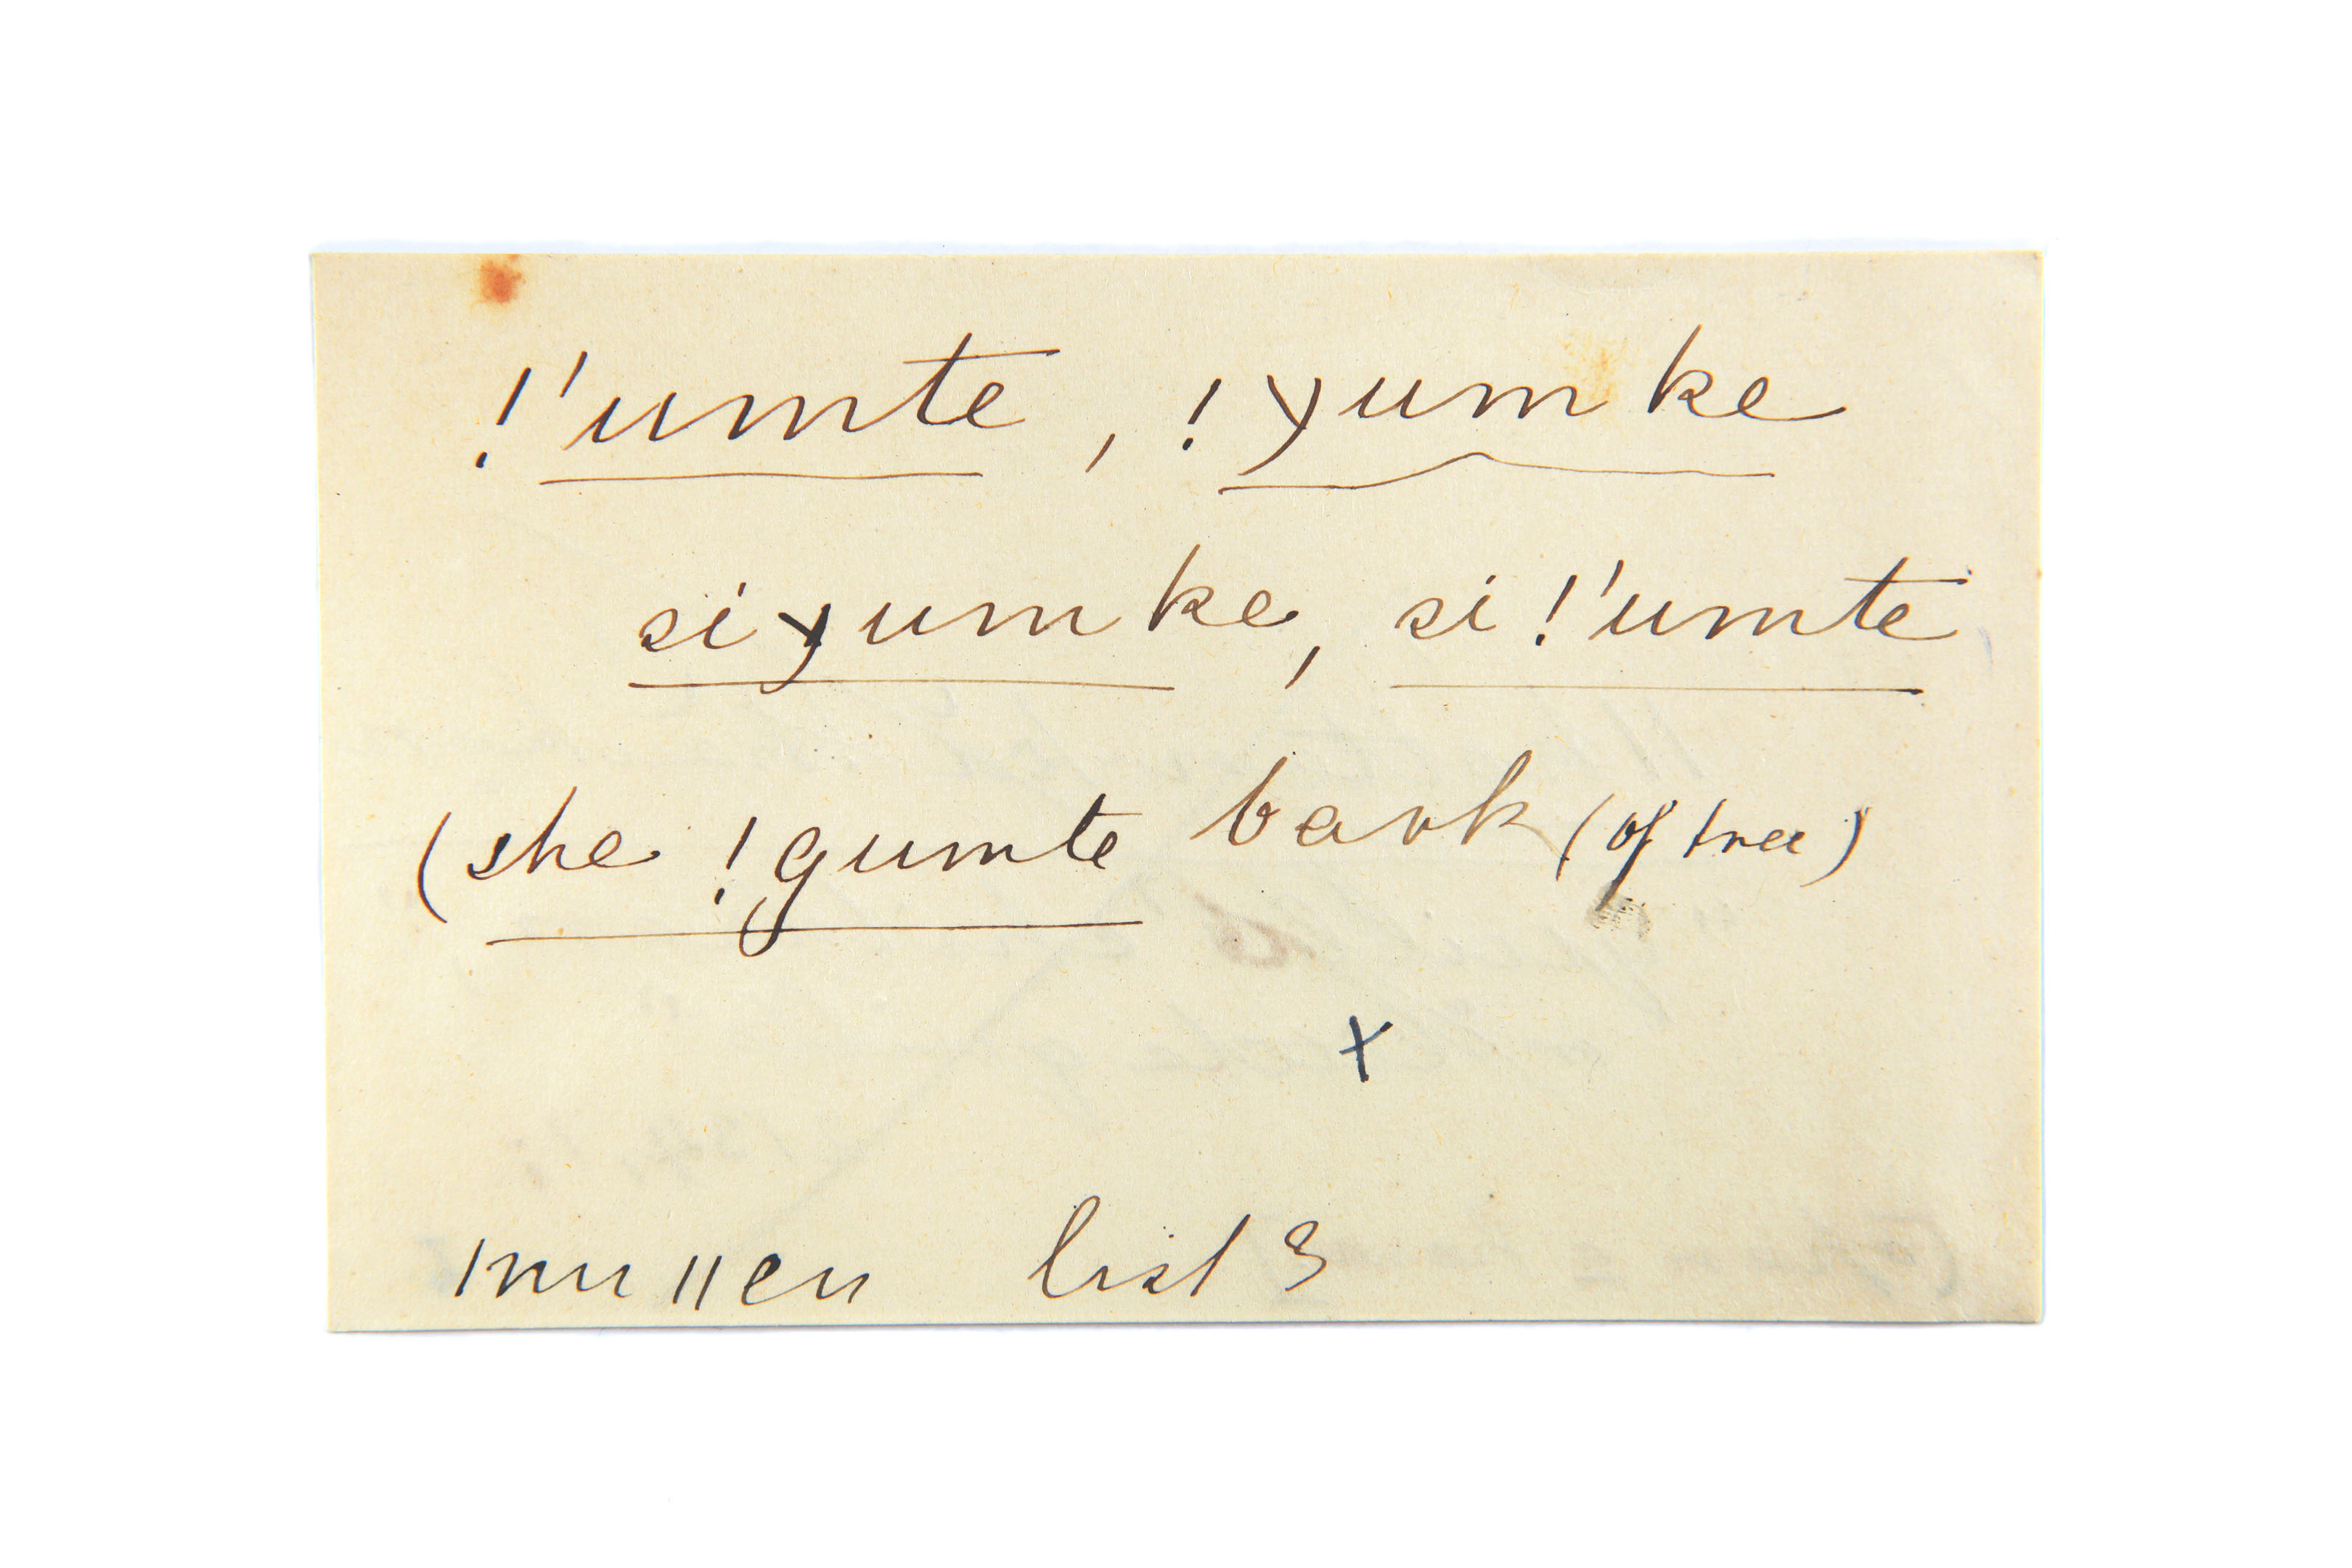 !'umte, !χumke
siχumke, si !'umte
(she !gumte bark (of tree)
x
list 3